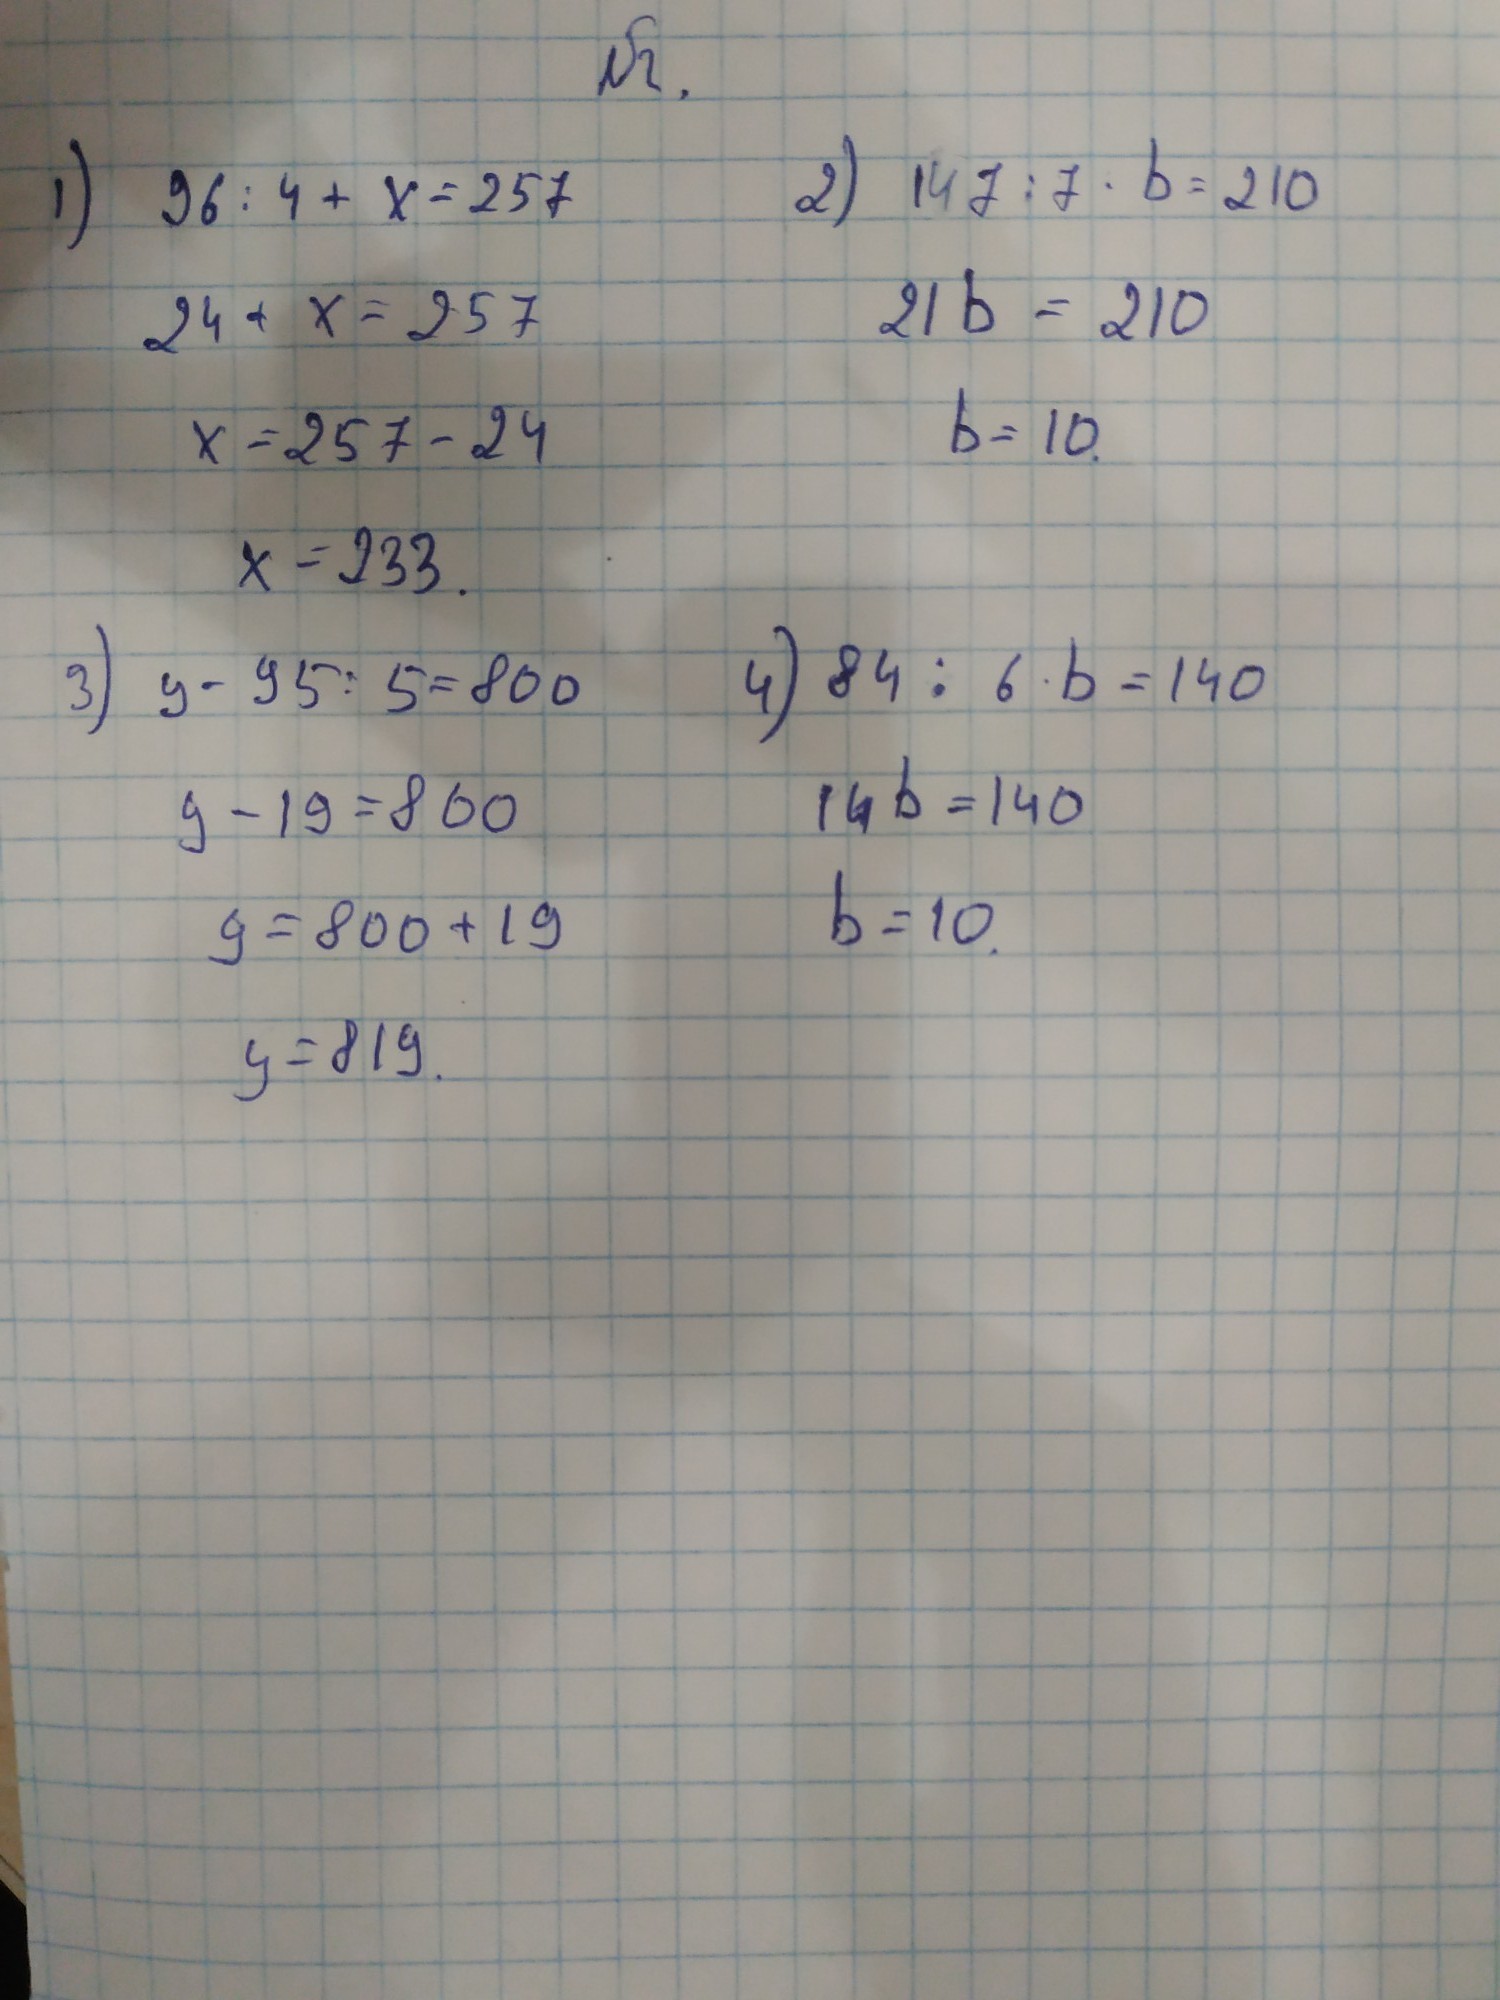 №2.
1) 96 : 4 + x = 257
24 + x = 257
x = 257 - 24
x = 233.
2) 147 : 7 · b = 210
21b = 210
b = 10.
3) y - 95 : 5 = 800
y - 19 = 800
y = 800 + 19
y = 819.
4) 84 : 6 · b = 140
14b = 140
b = 10.